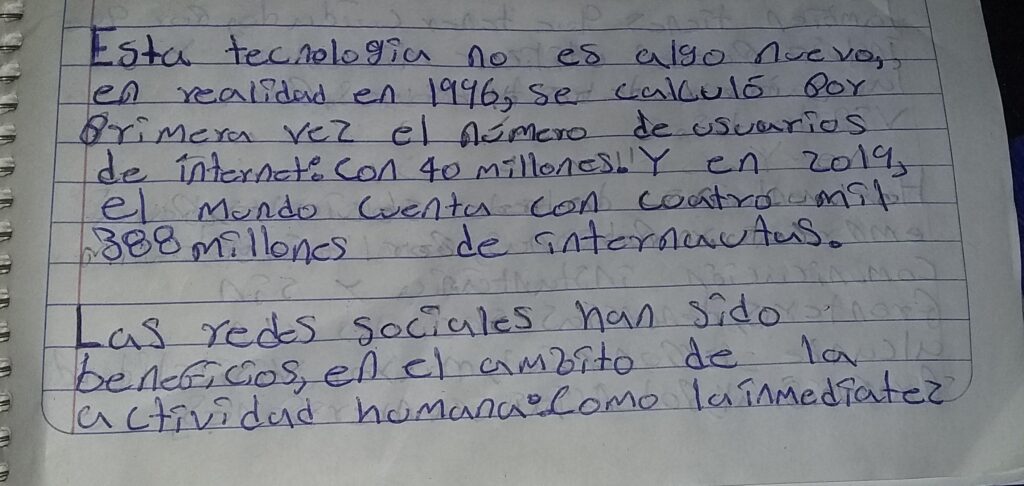 Esta tecnologia no es algo nuevo,
en realidad en 1996, se calculó por
primera vez el número de usuarios
de internet: con 40 millones. Y en 2019,
el mundo cuenta con coatro mil
388 millones de internautas.
Las redes sociales han sido
beneficios, en el ambito de la
actividad humana: Como la inmediatez